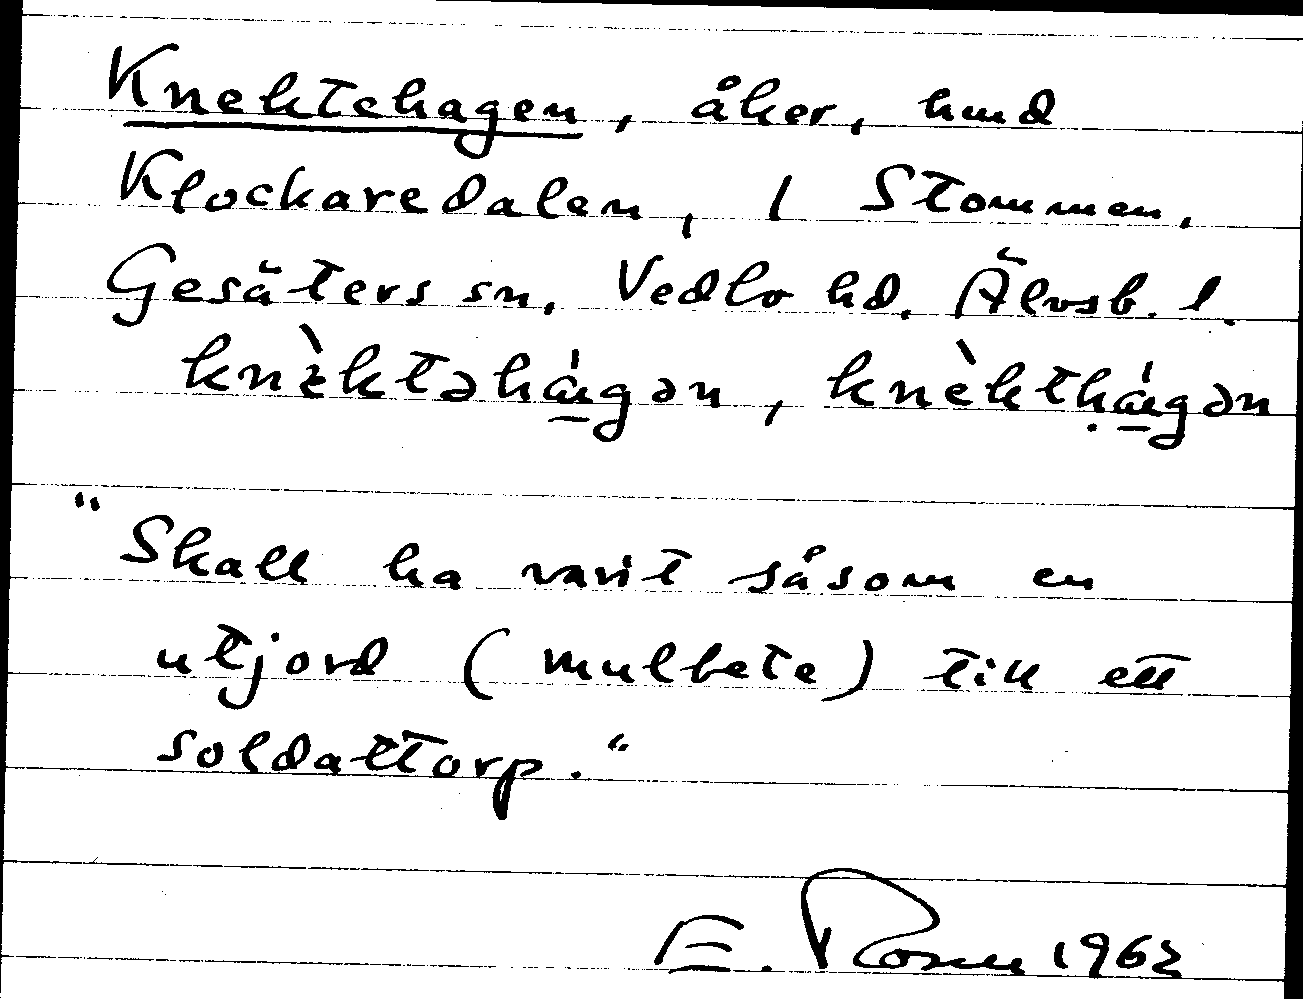 Knektehagen, åker, hmd
Klockaredalen, 1 Stommen,
Gesäters sn, Vedbo hd, Älvsb. l.
knɛ̀ktəhá̱gən, knèktḥá̱gən
"Skall ha varit såsom en
utjord (mulbete) till ett
soldattorp."
E. Rosell 1962